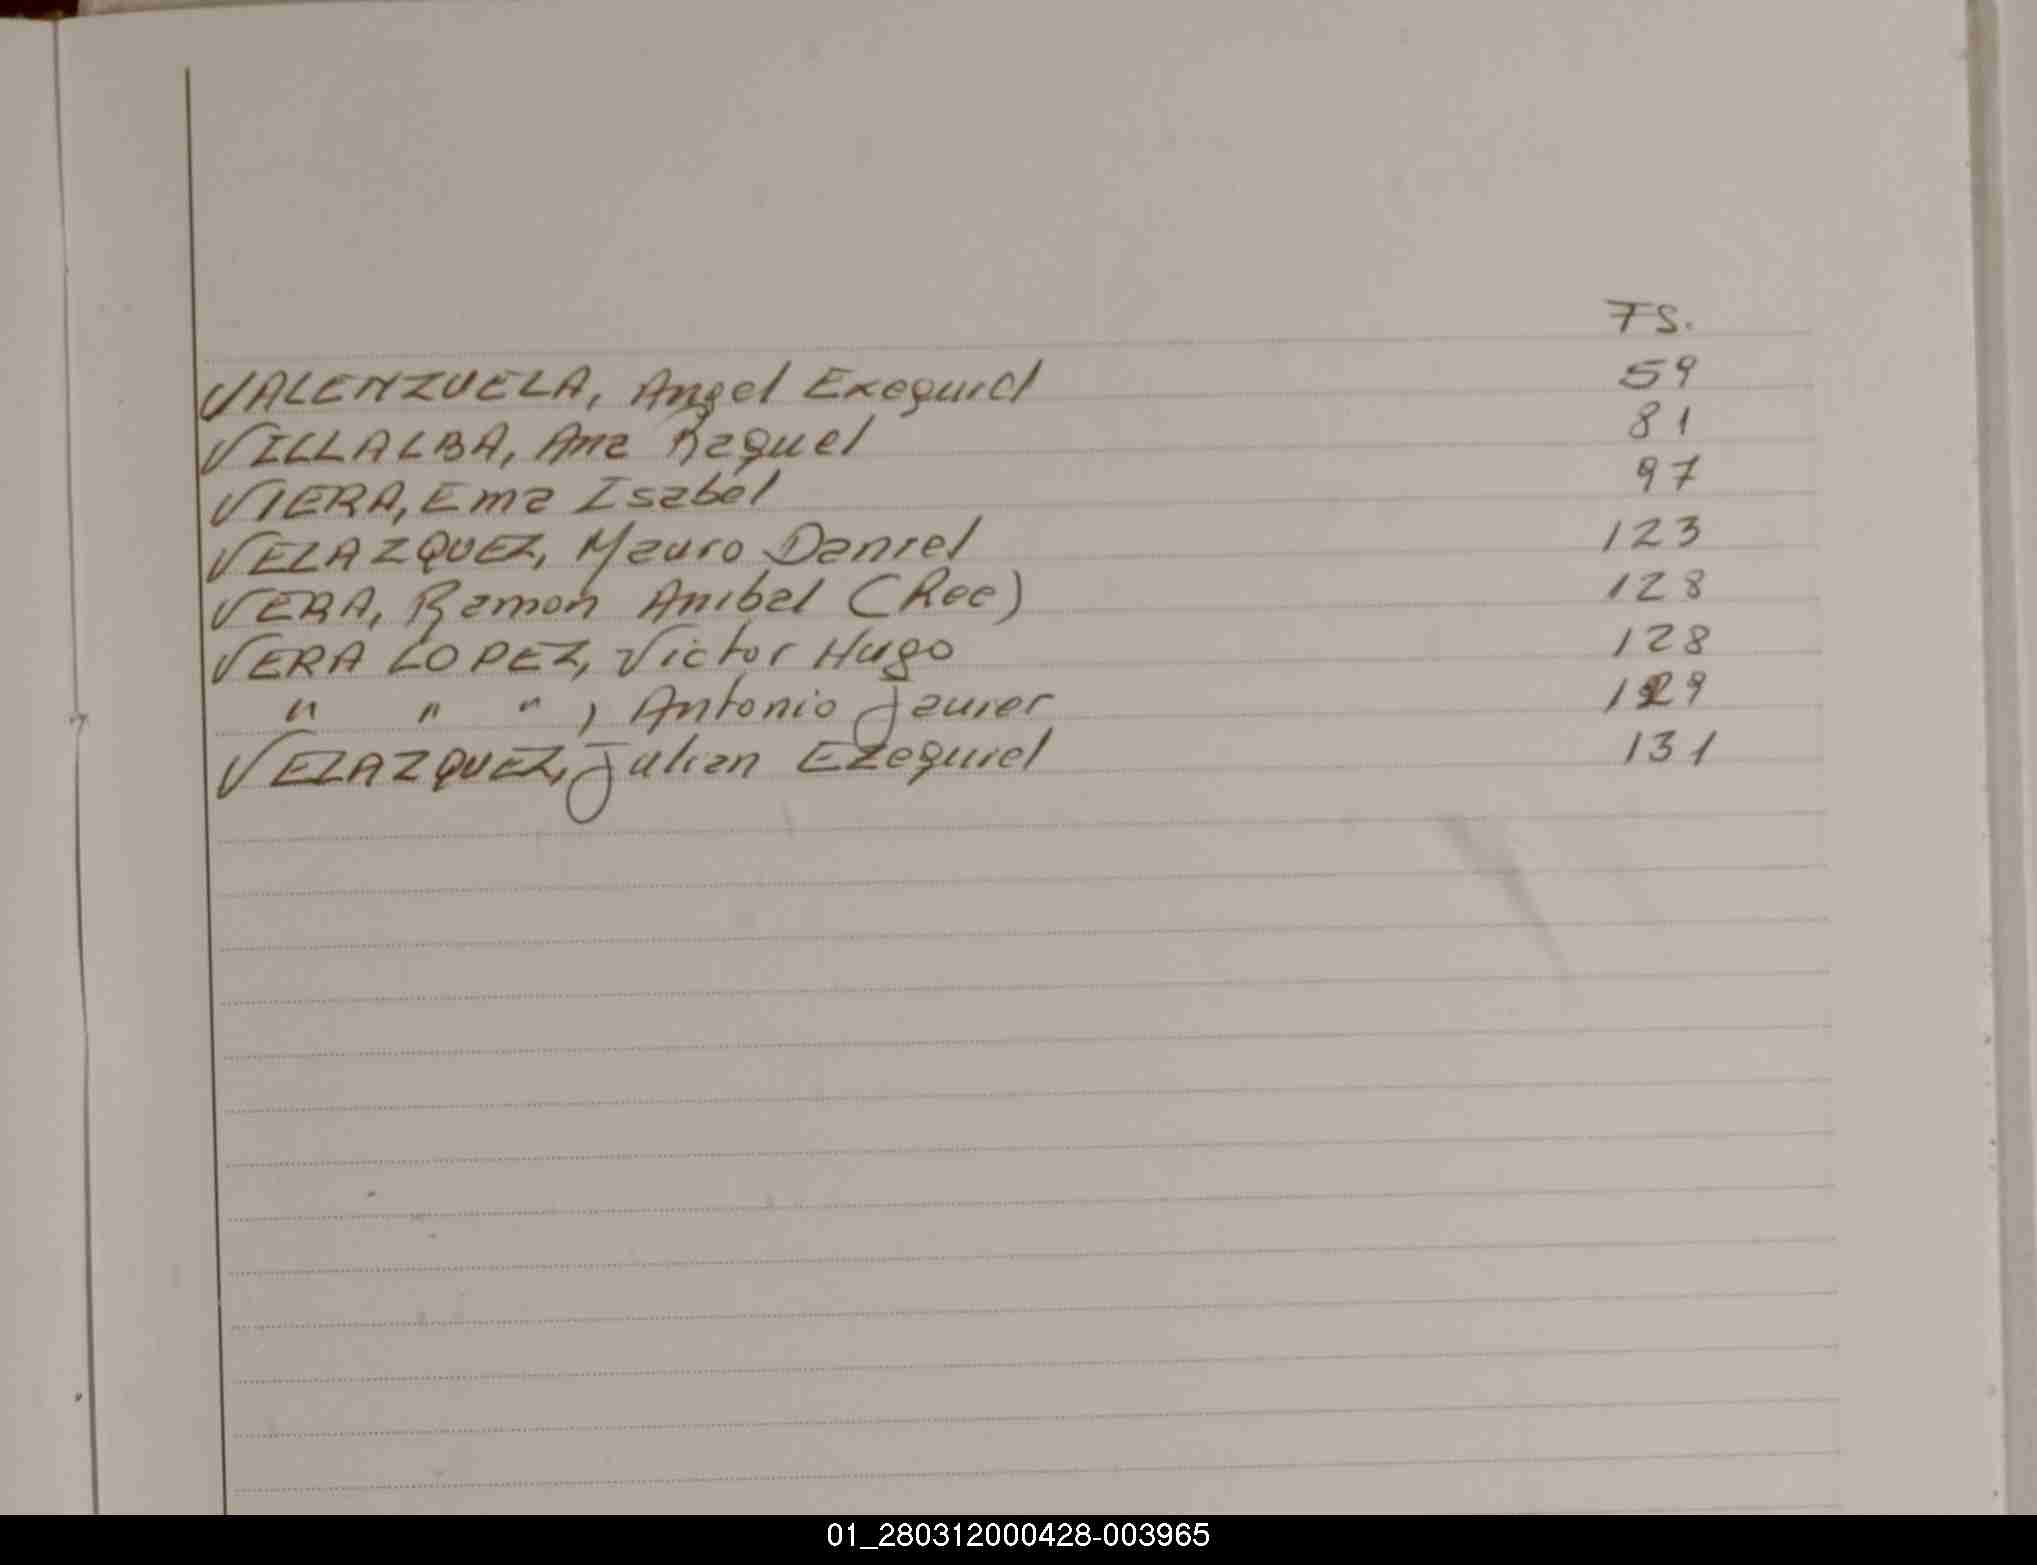 FS.
VALENZUELA, Angel Exequiel 59
VILLALBA, Ana Raquel 81
VIERA, Ema Isabel 97
VELAZQUEZ, Mauro Daniel 123
VERA, Ramon Anibal (Rec) 128
VERA LOPEZ, Victor Hugo 128
" " " , Antonio Javier 129
VELAZQUEZ, Julian Ezequiel 131
01_280312000428-003965